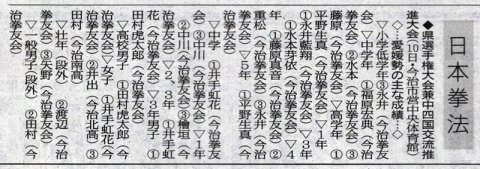 日本拳法
◆県選手権大会兼中四国交流推
進大会(10日・今治市営中央体育館)
◇…愛媛勢の主な成績…◇
▽小学低学年③永井(今治拳友
会)▽中学年①福原宏典(今治
拳友会)②水本(今治拳友会)③
藤原(今治拳友会)▽高学年①
平野生真(今治拳友会)▽1年
①永井藍翔(今治拳友会)▽3年
①水本芽依(今治拳友会)▽4
年①藤原真音(今治拳友会)②
重松(今治拳友会)③永井(今治
拳友会)▽5年①平野生真(今
治拳友会)
▽中学①井手虹花(今治拳友
会)③中川(今治拳友会)▽1年
②中川(今治拳友会)③檜垣(今
治拳友会)▽2、3年①井手虹
花(今治拳友会)▽3年男子①
田村虎太郎(今治拳友会)
▽高校男子①田村虎太郎(今
治拳友会)▽女子①井手虹花(今
治拳友会)②井出(今治北高)③
田村(今治明徳高)
▽壮年(段外)②渡辺(今治
拳友会)③矢野(今治拳友会)
▽一般男子(段外)②田村(今
治拳友会)